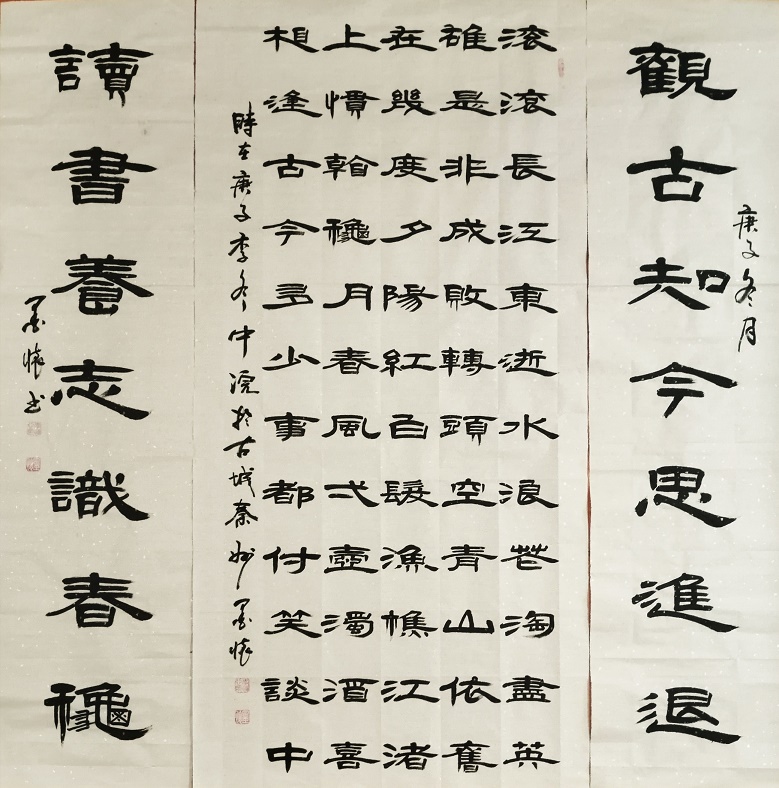 庚子冬月
觀古知今思進退
滚滚長江東逝水浪花淘盡英
雄是非成敗轉頭空青山依舊
在幾度夕陽紅白髮漁樵江渚
上慣看龝月春風弌壺濁酒喜
相逢古今多少事都付笑談中
時在庚子季冬中浣於古城秦州墨懷
讀書養志識春龝
墨懷书